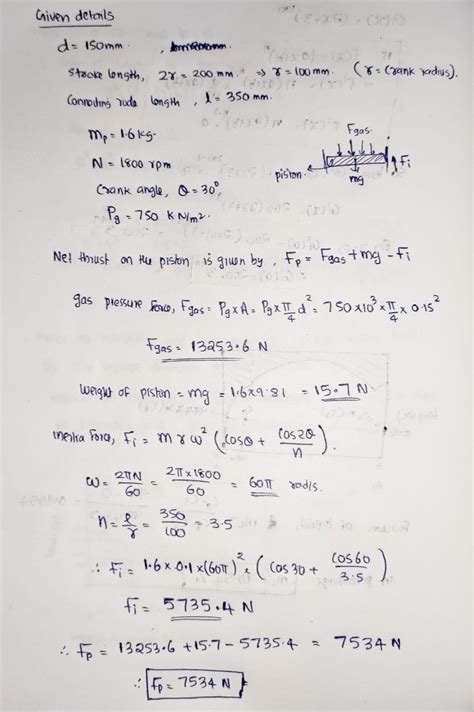 Given details
d = 150mm. ,
Stroke length, 2r = 200 mm. ⇒ r = 100 mm. (r = Crank radius).
Connoding rude length, l = 350 mm.
mp = 1.6 kg.
N = 1800 rpm
Crank angle, θ = 30°
Pg = 750 KN/m².
Fgas
Fi
piston
mg
Net thrust on the piston is given by, Fp = Fgas + mg - Fi
gas pressure force, Fgas = Pg x A = Pg x π/4 d² = 750 x10³ x π/4 x 0.15²
Fgas = 13253.6 N
Weight of piston = mg = 1.6x9.81 = 15.7 N
inertia Force, Fi = m r ω² (cosθ + cos2θ/n)
ω = 2πN/60 = 2π x 1800/60 = 60π rad/s.
n = l/r = 350/100 = 3.5
∴ Fi = 1.6 x 0.1 x (60π)² x (cos 30 + cos60/3.5)
Fi = 5735.4 N
∴ Fp = 13253.6 + 15.7 - 5735.4 = 7534 N
∴ Fp = 7534 N